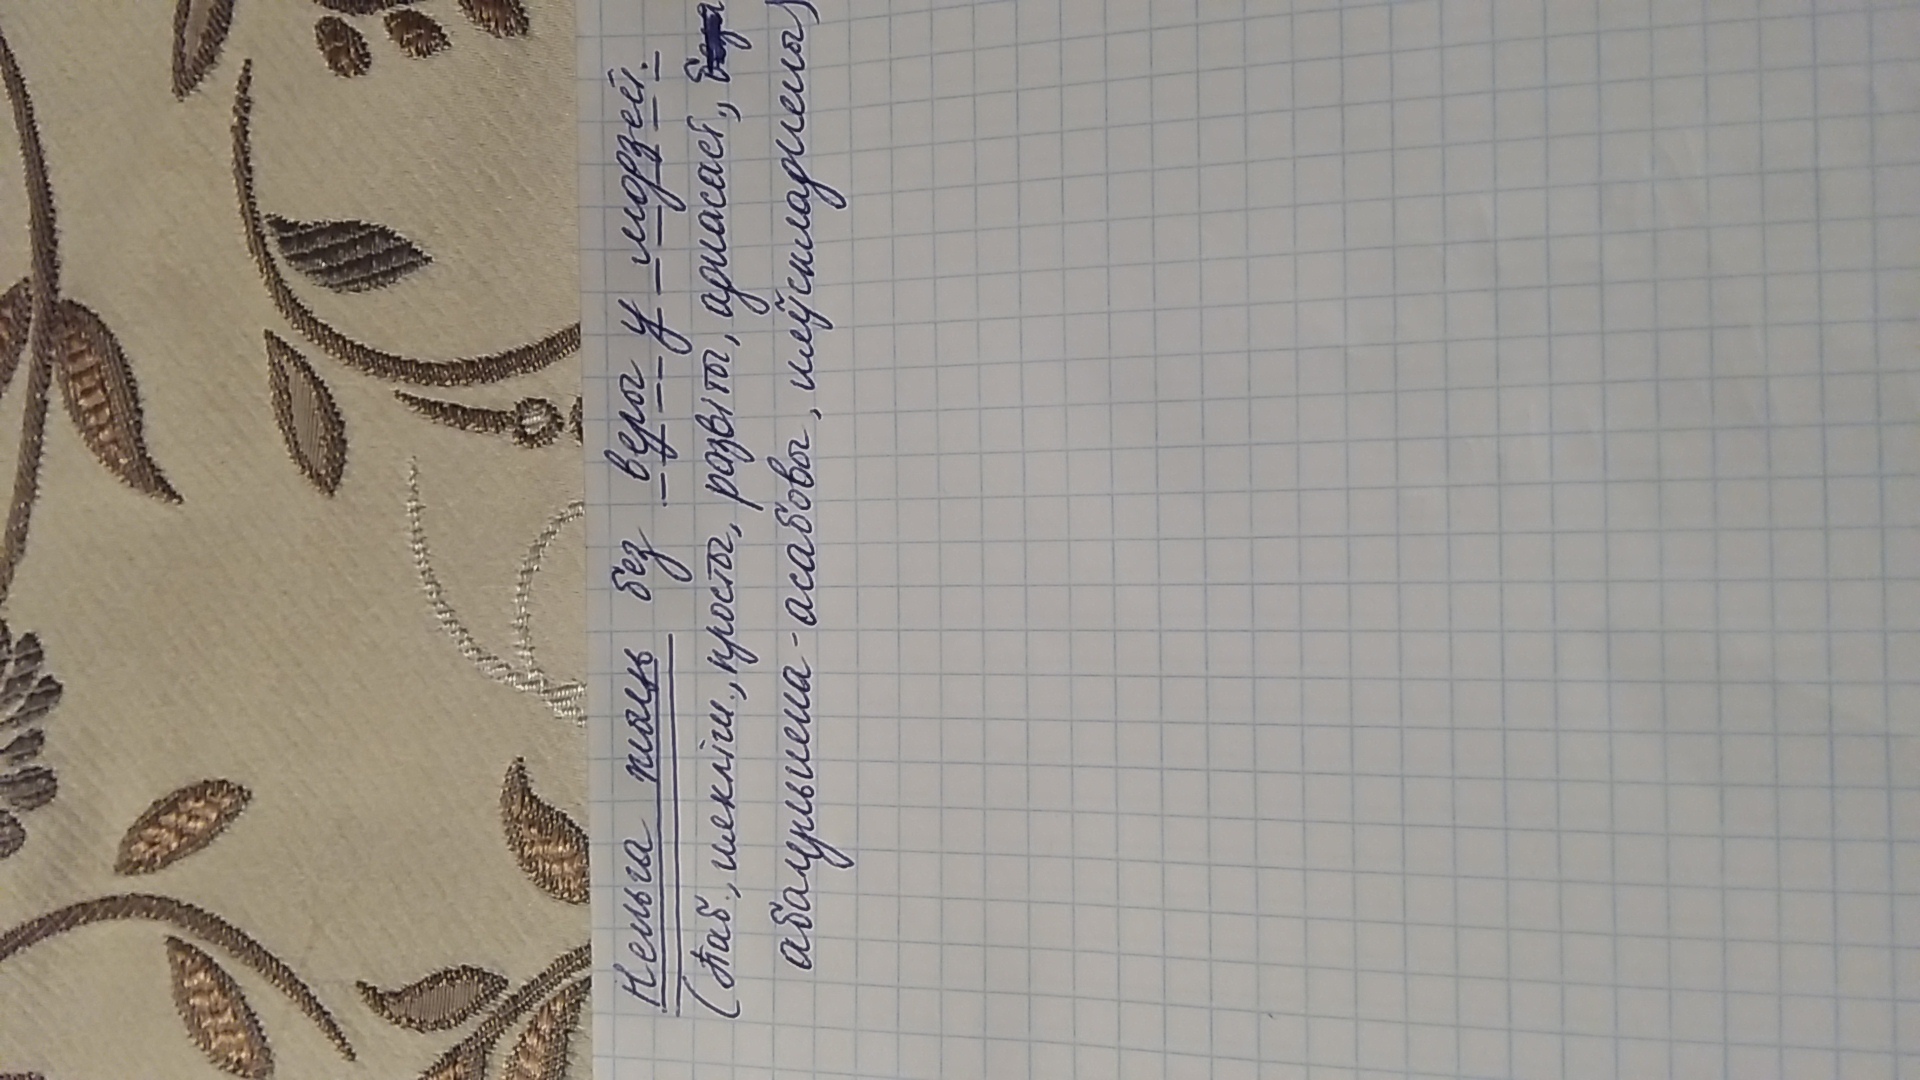 Нельга жыць без веры у людзей.
(Апав., неклічн., просты, развіты, аднасаст.,
абагульнена-асабовы, неўскладнены)